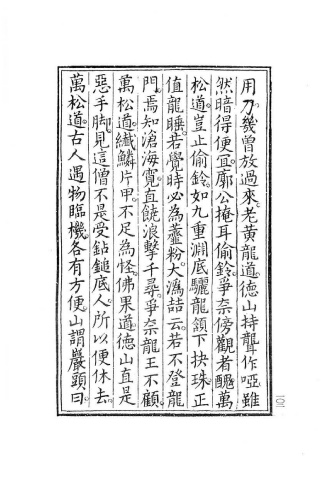 用刀。幾曾放過來。老黃龍道。德山持聾作啞。雖
然暗得便宜。廓公掩耳偷鈴。爭奈傍觀者醜。萬
松道。豈止偷鈴。如九重淵底。驪龍頷下抉珠。正
值龍睡。若覺時必為虀粉。大溈喆云。若不登龍
門。焉知滄海寬。直饒浪擊千尋。爭奈龍王不顧。
萬松道。纖鱗片甲。不足為怪。佛果道。德山直是
惡手脚。見這僧不是受鉆鎚底人。所以便休去。
萬松道。古人遇物臨機。各有方便。山謂巖頭曰。
一〇一